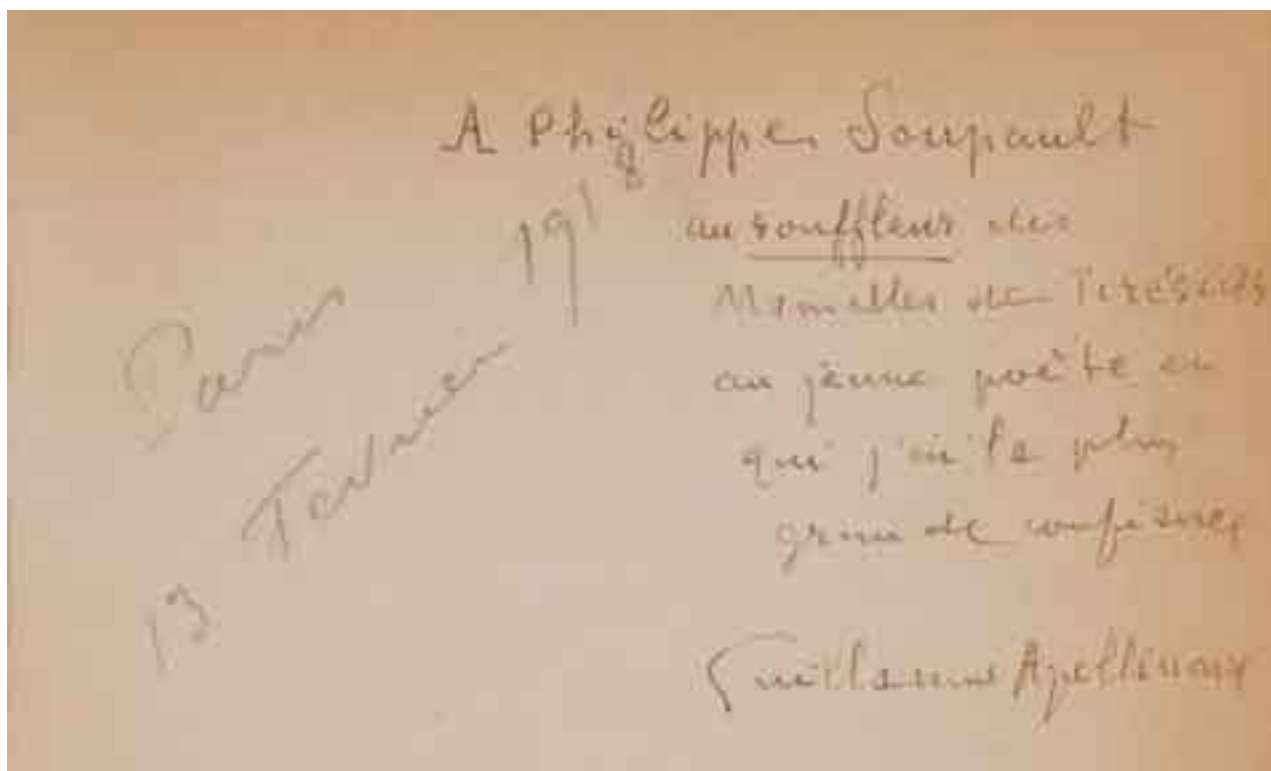 A Philippe Soupault
au souffleur des
Mamelles de Tirésias
au jeune poète en
qui j'ai la plus
grande confiance
Guillaume Apollinaire
Paris
13 Fevrier 1918